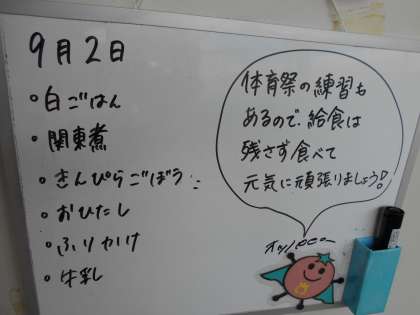 9月2日
・白ごはん
・関東煮
・きんぴらごぼう
・おひたし
・ふりかけ
・牛乳
体育祭の練習も
あるので、給食は
残さず食べて
元気に頑張りましょう!